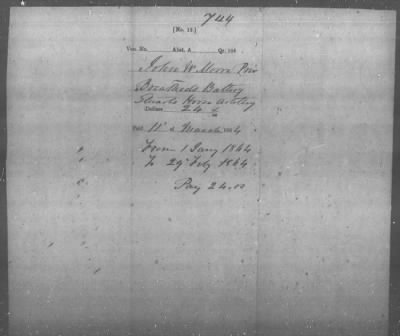 744
[No. 13.]
Vou. No. Abst. A Qr. 184
John W Moore Priv
Breatheds Battery
Stuarts Horse Artillery
Dollars 24
Paid 11th March 1864
From 1 Jany 1864
To 29 Feby 1864
Pay 24.00